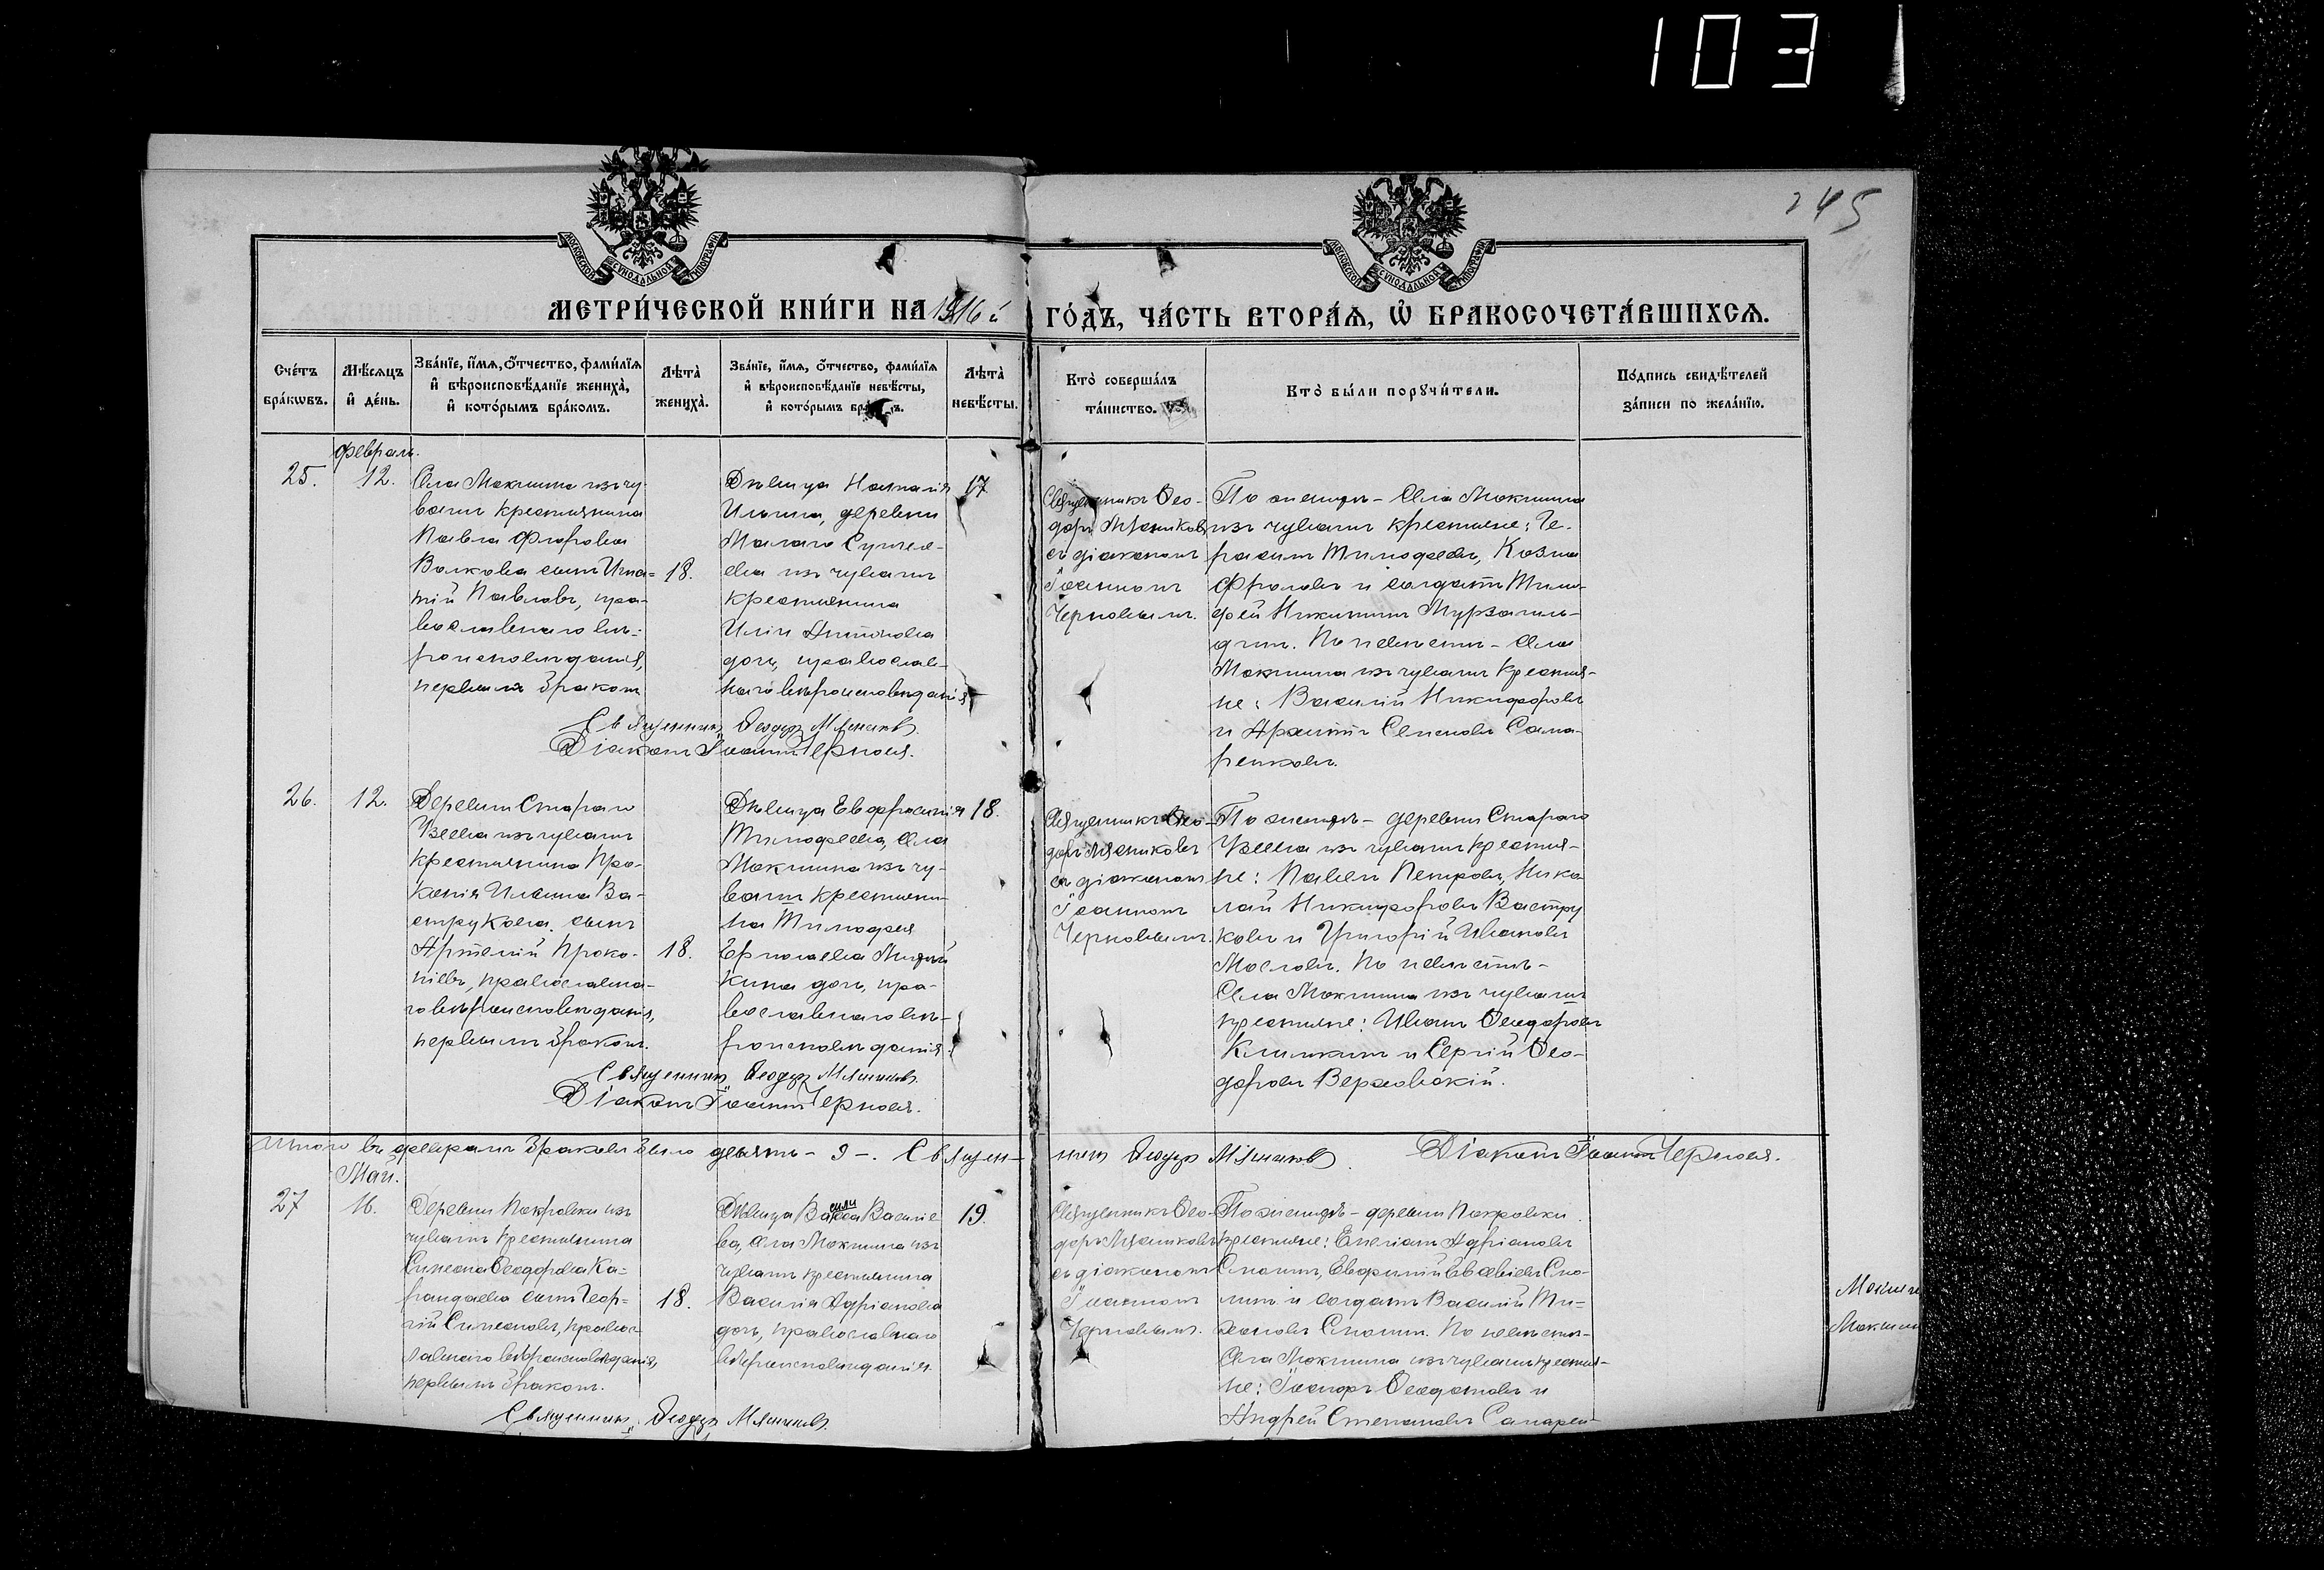 103
245
МОСКОВСКОЙ СѴНОДАЛЬНОЙ ТИПОГРАФІИ
МОСКОВСКОЙ СѴНОДАЛЬНОЙ ТИПОГРАФІИ
МЕТРИ́ЧЕСКОЙ КНИ́ГИ НА 1916 й ГО́ДЪ, ЧА́СТЬ ВТОРА́Ѧ, Ѽ БРАКОСОЧЕТА́ВШИХСѦ.
Сче́тъ бра́кѡвъ.
Мѣ́сѧцъ и҆ де́нь.
Зва́нїе, и҆́мѧ, ѻ҆́тчество, фами́лїѧ
и҆ вѣроисповѣ́данїе жениха̀,
и҆ кото́рымъ бра́комъ.
Лѣта̀ жениха̀.
Зва́нїе, и҆́мѧ, ѻ҆́тчество, фами́лїѧ
и҆ вѣроисповѣ́данїе невѣ́сты,
и҆ кото́рымъ
Лѣта̀ невѣ́сты.
Кто̀ соверша́лъ
та́инство.
Кто̀ бы́ли порꙋчи́тели.
По́дпись свидѣ́телей
за́писи по жела́нїю.
Февраль.
25.
12.
Села Мокшина изъ чу-
вашъ крестьянина
Павла Флорова
Волкова сынъ Игна-
тій Павловъ, пра-
вославнаго вѣ-
роисповѣданія,
первымъ бракомъ
18.
Дѣвица Наталія
Ильина, деревни
Малаго
ева изъ чувашъ
крестьянина
Иліи Антонова
дочь, православ-
наго вѣроисповѣданія
17
Священникъ Ѳео-
доръ Мясниковъ
съ діакономъ
Іоанномъ
Черновымъ.
По женихѣ - села Мокшина
изъ чувашъ крестьяне: Ге-
расимъ Тимофеевъ, Козма
Фроловъ и солдатъ Тимо-
фей Никитинъ
По невѣстѣ - села
Мокшина изъ чувашъ крестья-
не: Василій Никифоровъ
и Архиппъ Семеновъ Сама-
ренковъ.
Священникъ Ѳеодоръ Мясниковъ.
Діаконъ Іоаннъ Черновъ.
26.
12.
Деревни Стараго
Узеева изъ чувашъ
крестьянина Про-
копія Ильина Ва-
струкова сынъ
Артемій Проко-
піевъ, православна-
го вѣроисповѣданія,
первымъ бракомъ.
18.
Дѣвица Евфросинія
Тимофеева, села
Мокшина изъ чу-
вашъ крестьяни-
на Тимофея
Ермолаева
кина дочь, пра-
вославнаго вѣ-
роисповѣданія.
18.
Священникъ Ѳео-
доръ Мясниковъ
съ діакономъ
Іоанномъ
Черновымъ.
По женихѣ - деревни Стараго
Узеева изъ чувашъ крестья-
не: Павелъ Петровъ, Нико-
лай Никифоровъ Вастру
ковъ и Григорій Ивановъ
Масловъ. По невѣстѣ -
Села Мокшина изъ чувашъ
крестьяне: Иванъ Ѳеодоровъ
Климкинъ и Сергій Ѳео-
доровъ Верховскій.
Священникъ Ѳеодоръ Мясниковъ.
Діаконъ Іоаннъ Черновъ.
Итого въ февралѣ браковъ было девять - 9 -. Священ-
никъ Ѳеодоръ Мясниковъ. Діаконъ Іоаннъ Черновъ.
Май.
27
16.
Деревни Покровки изъ
чувашъ крестьянина
Симеона Ѳеодорова Ка-
рандаева сынъ Геор-
гій Симеоновъ, правос-
лавнаго вѣроисповѣданія,
первымъ бракомъ.
18.
Дѣвица Васса Василье
ва, села Мокшина изъ
чувашъ крестьянина
Василія Адріанова
дочь, православнаго
вѣроисповѣданія.
19.
Священникъ Ѳео-
доръ Мясниковъ
съ діакономъ
Іоанномъ
Черновымъ.
По женихѣ - деревни Покровки
крестьяне: Адріановъ
Смолинъ, Евфимій Евсевіевъ Смо-
линъ и солдатъ Василій Ти-
хоновъ Смолинъ. По невѣстѣ -
Села Мокшина изъ чувашъ крестья-
не: Ѳеодотовъ и
Андрей Степановъ Самарен-
Священникъ Ѳеодоръ Мясниковъ.
Мокши
Мокши